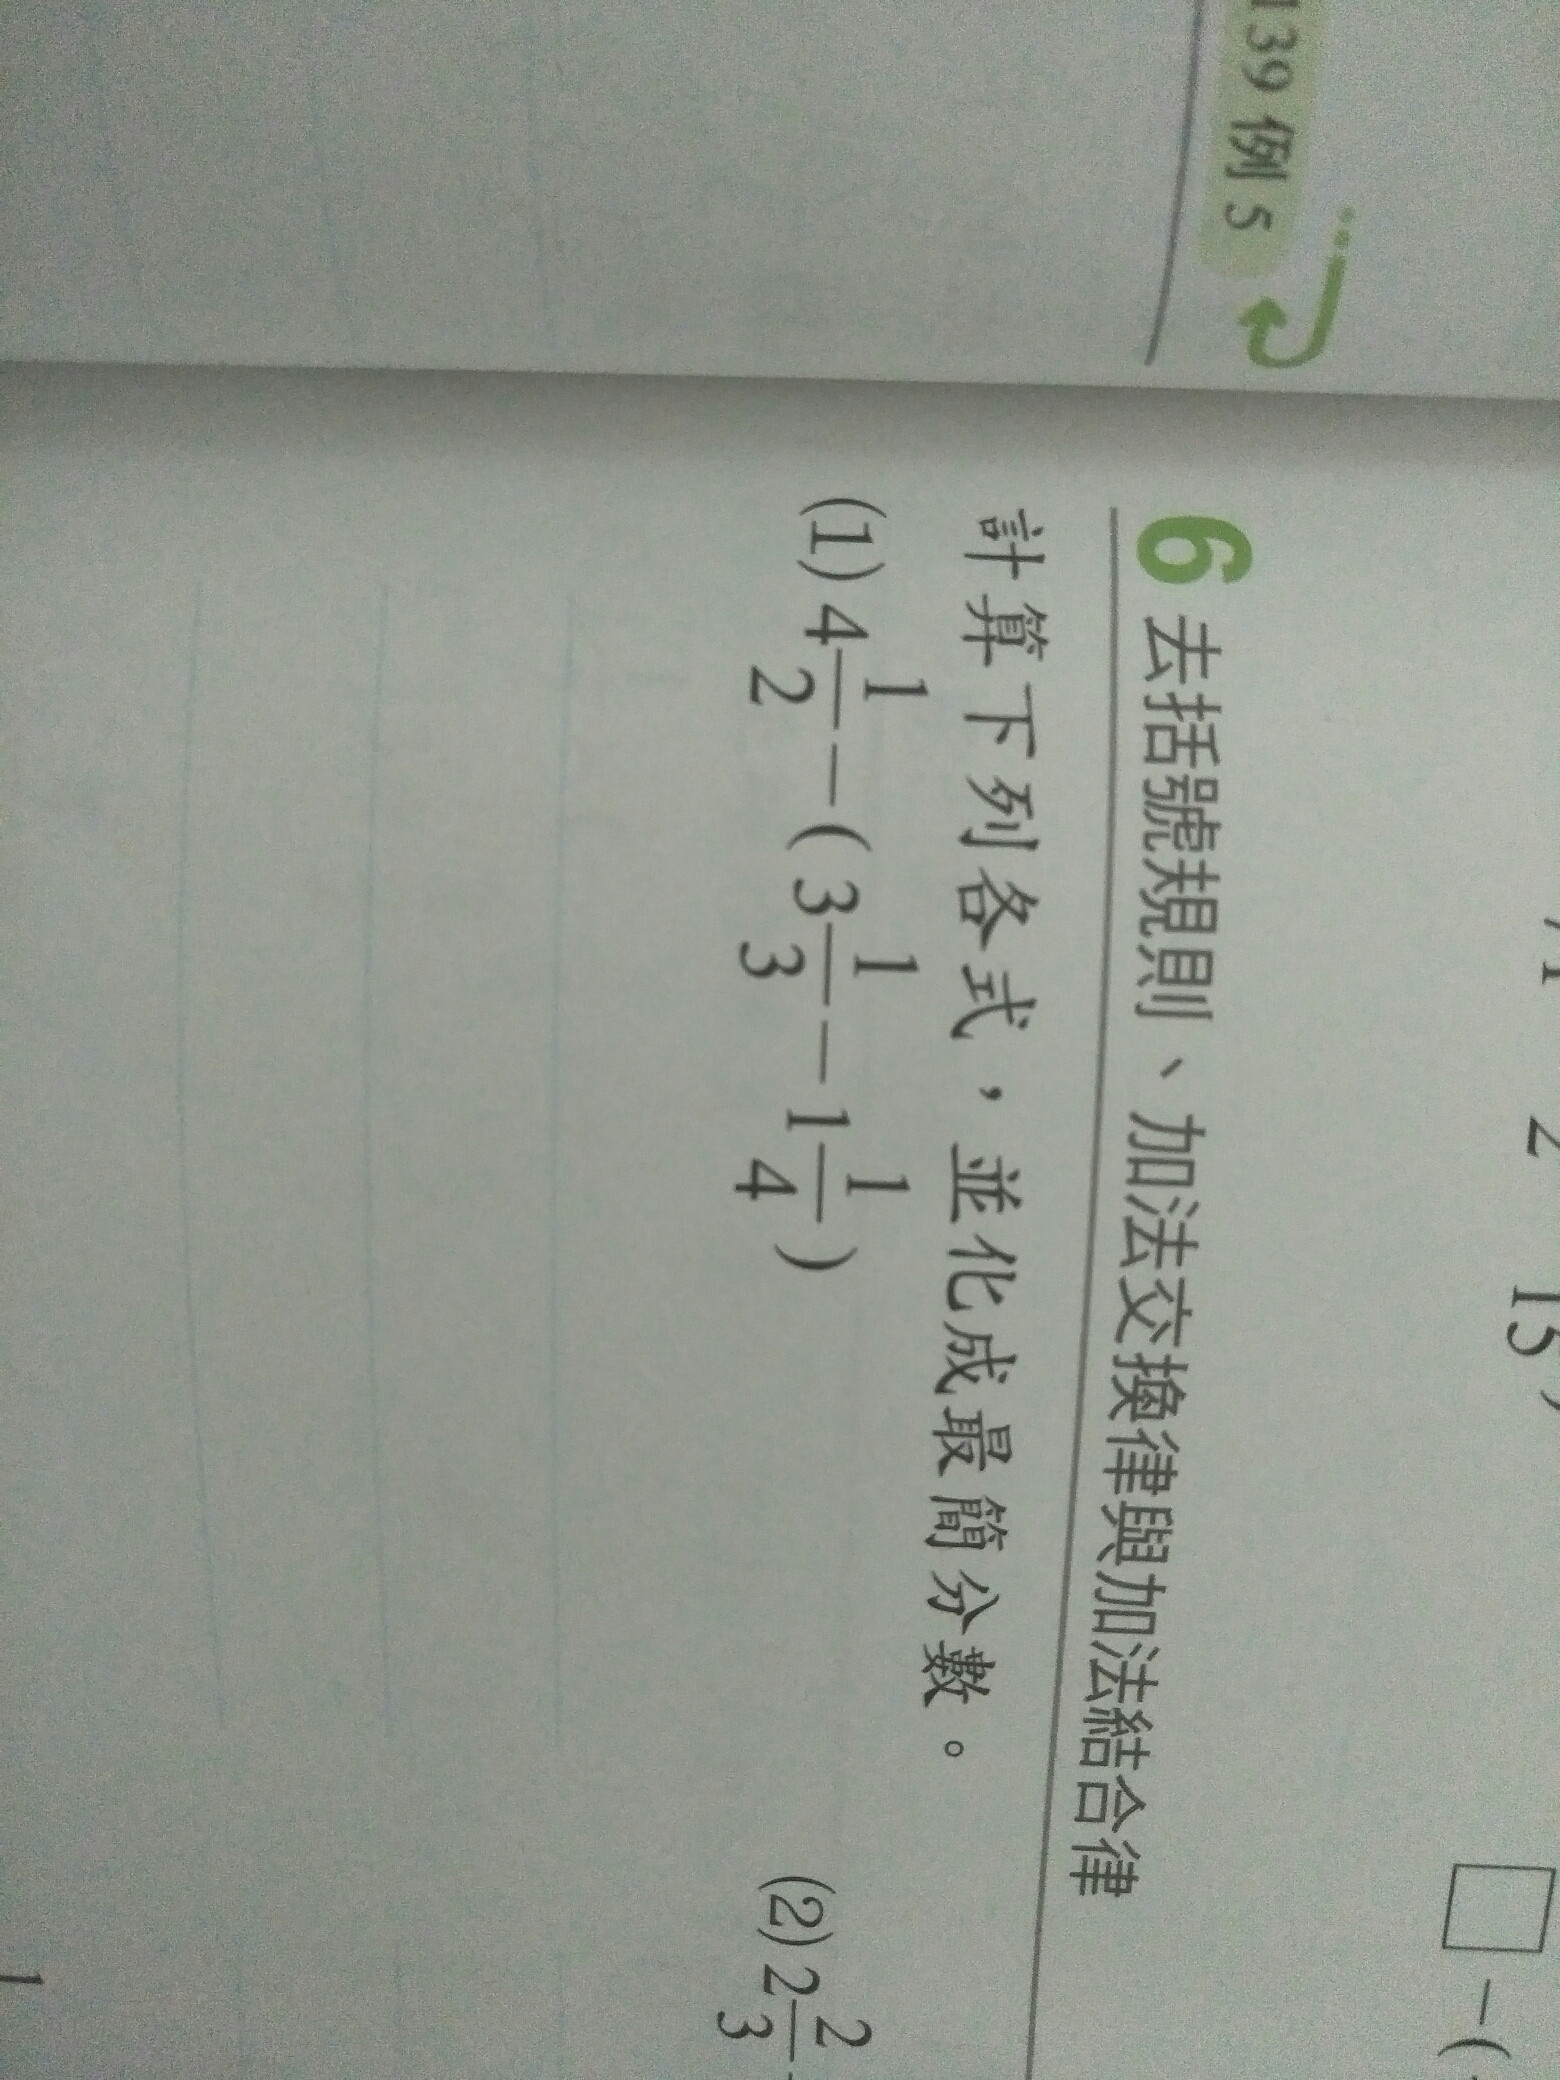 139 例 5
6 去括號規則、加法交換律與加法結合律
計算下列各式，並化成最簡分數。
(1) 4 1/2 − ( 3 1/3 − 1 1/4 )
(2) 2 2/3